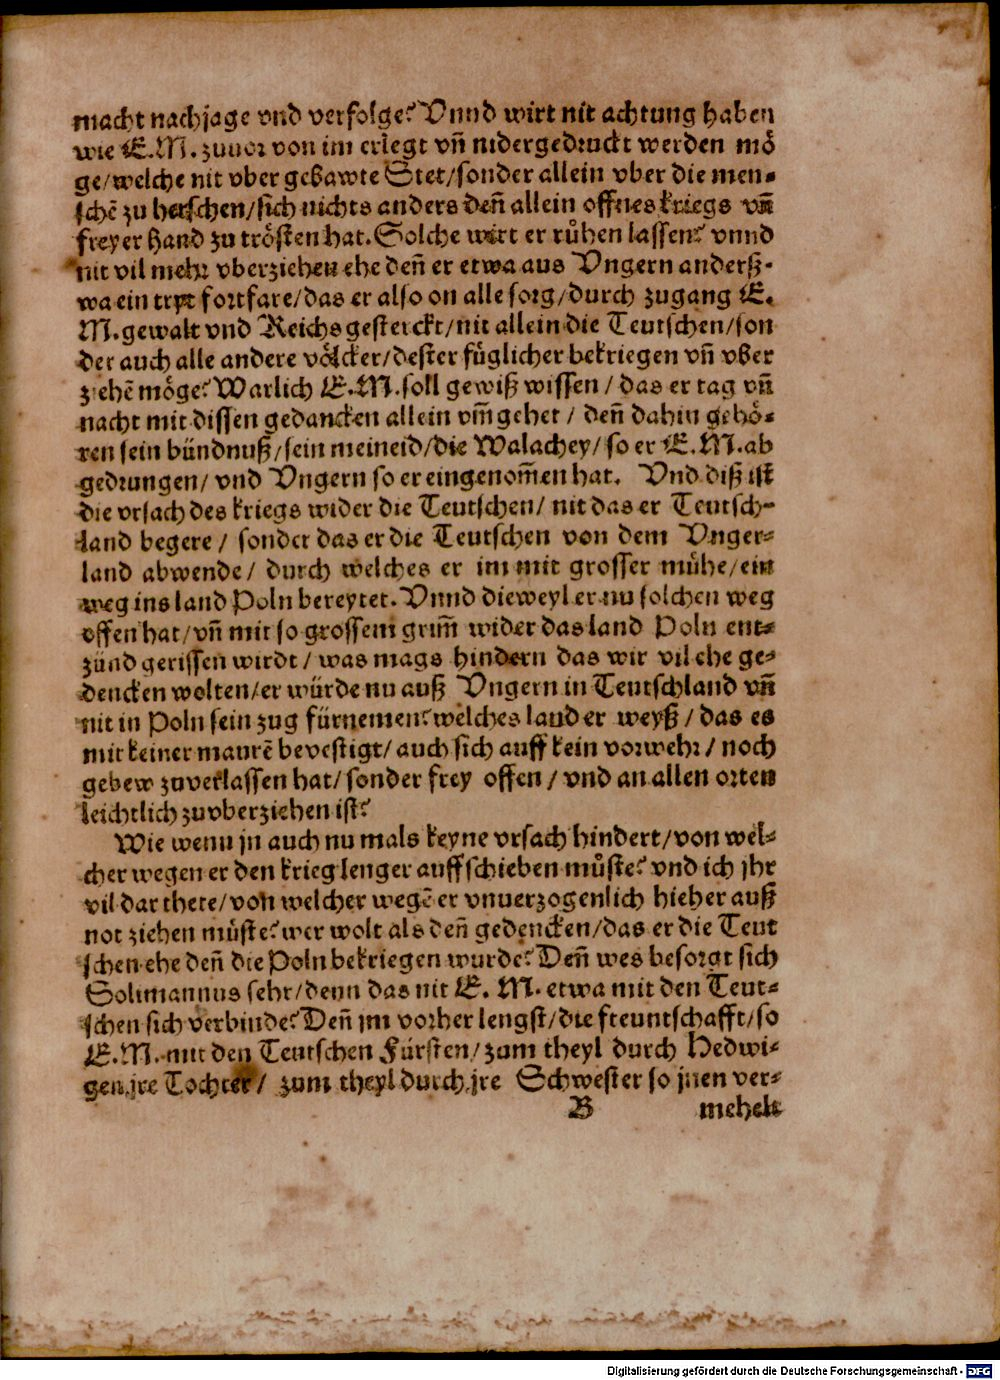 macht nachjage vnd verfolge? Vnnd wirt nit achtung haben
wie E.M. zuuor von im erlegt vñ nidergedruckt werden mö
ge/welche nit vber gebawte Stet/sonder allein vber die men-
schẽ zu herschen/sich nichts anders deñ allein offnes kriegs vñ
freyer hand zu trösten hat. Solche wirt er růhen lassen? vnnd
nit vil mehr vberziehen ehe deñ er etwa aus Vngern anderß-
wa ein tryt fortfare/das er also on alle sorg/durch zugang E.
M. gewalt vnd Reichs gesterckt/nit allein die Teutschen/son
der auch alle andere völcker/dester füglicher bekriegen vñ vber
ziehẽ möge? Warlich E.M. soll gewiß wissen / das er tag vñ
nacht mit dissen gedancken allein vm̃gehet / deñ dahin gehö-
ren sein bündnuß/sein meineid/die Walachey/so er E.M. ab
gedrungen/ vnd Vngern so er eingenom̃en hat. Vnd diß ist
die vrsach des kriegs wider die Teutschen/ nit das er Teutsch-
land begere / sonder das er die Teutschen von dem Vnger-
land abwende / durch welches er im mit grosser mühe/ein
weg ins land Poln bereytet. Vnnd dieweyl er nu solchen weg
offen hat/vñ mit so grossem grim̃ wider das land Poln ent-
zünd gerissen wirdt / was mags hindern das wir vil ehe ge-
dencken wolten/er würde nu auß Vngern in Teutschland vñ
nit in Poln sein zug fürnemen? welches land er weyß / das es
mit keiner maurẽ bevestigt/ auch sich auff kein vorwehr / noch
gebew zuverlassen hat/ sonder frey offen / vnd an allen orten
leichtlich zuvberziehen ist?
Wie wenn jn auch nu mals keyne vrsach hindert/von wel-
cher wegen er den krieg lenger auffschieben můste? vnd ich jhr
vil dar thete/von welcher wegẽ er vnuerzogenlich hieher auß
not ziehen müste? wer wolt als deñ gedencken/das er die Teut
schen ehe deñ die Poln bekriegen wurde? Deñ wes besorgt sich
Solimannus sehr/denn das nit E. M. etwa mit den Teut-
schen sich verbinde? Deñ jm vorher lengst/die freuntschafft/so
E.M. mit den Teutschen Fürsten/zum theyl durch Hedwi-
gen jre Tochter/ zum theyl durch jre Schwester so jnen ver-
B mehelt
Digitalisierung gefördert durch die Deutsche Forschungsgemeinschaft - DFG